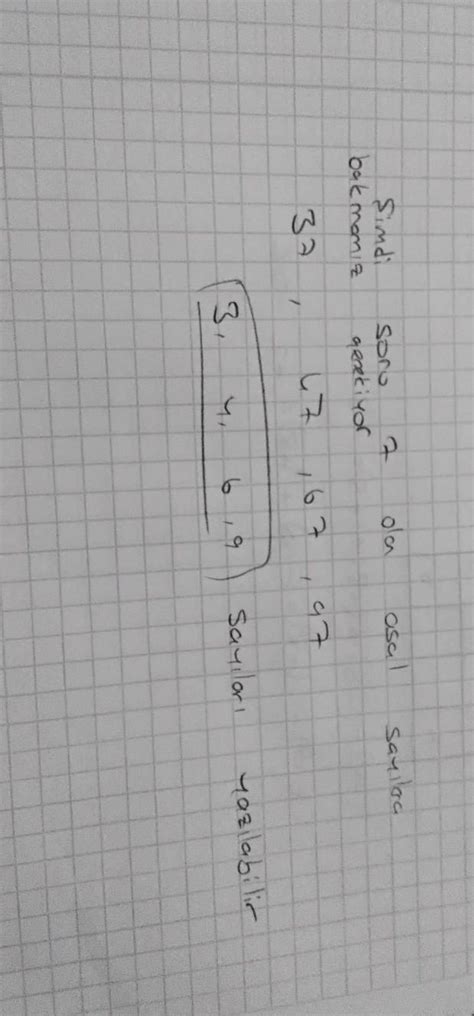 Şimdi sonu 7 ola osal sayılaa
bakmamız gerekiyor
37, 47, 67, 97
3, 4, 6, 9) sayıları yazılabilir